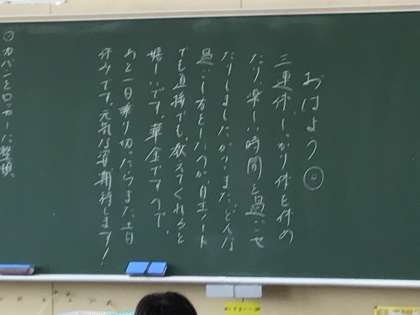 おはよう
三連休しっかり体を休め
たり楽しい時間を過ごせ
たりしましたか?またどんな
過ごし方をしたのか、自主ノート
でも直接でも教えてくれると
嬉しいです。華金ですので、
あと一日乗り切ったらまた土日
休みです。元気な姿期待します!
カバンとロッカーに整頓。